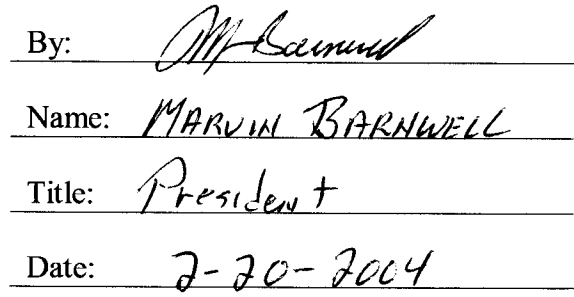 By: M Barnwell
Name: MARVIN BARNWELL
Title: President
Date: 2-20-2004